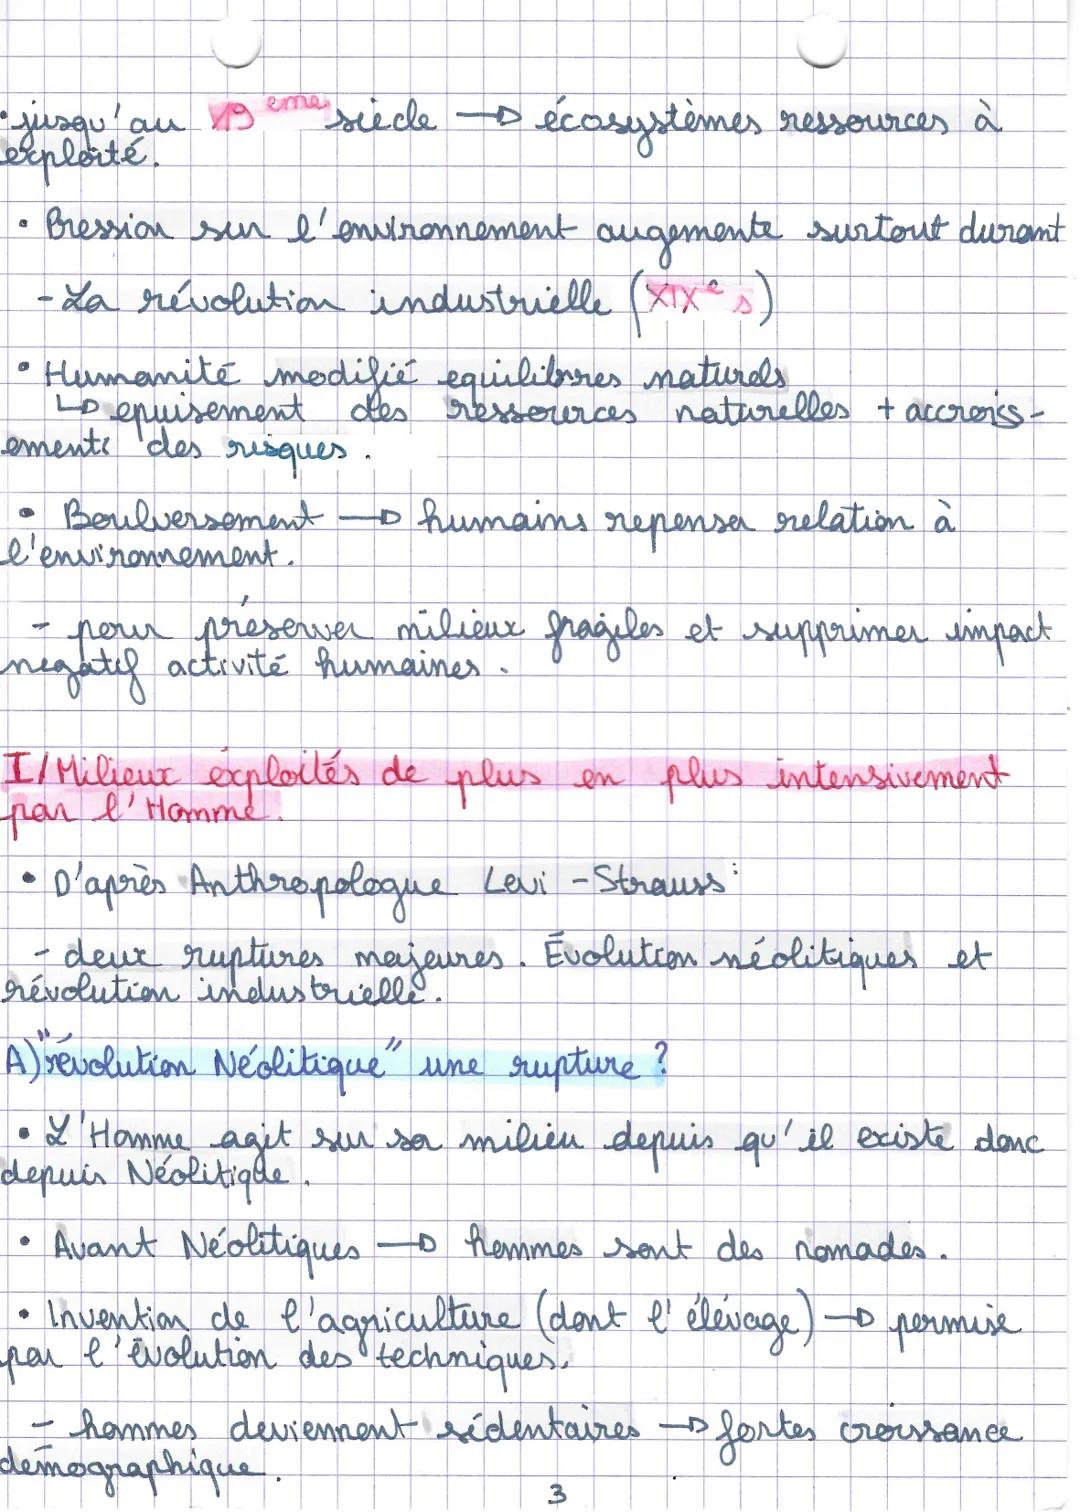 • jusqu'au 19 eme siècle → écosystèmes ressources à
exploité.
• Pression sur l'environnement augmente surtout durant
- La révolution industrielle (XIXe s)
• Humanité modifié equilibres naturels
↳ epuisement des ressources naturelles + accroiss-
ements des risques.
• Boulversement → humains repenser relation à
l'environnement.
- pour préserver milieux fragiles et supprimer impact
negatif activité humaines.
I/ Milieux exploités de plus en plus intensivement
par l'Homme.
• D'après Anthropologue Levi - Strauss:
- deux ruptures majeures. Évolution néolitiques et
révolution industrielle.
A) "révolution Néolitique" une rupture ?
• L'Homme agit sur sa milieu depuis qu'il existe donc
depuis Néolitique.
• Avant Néolitiques → hommes sont des nomades.
• Invention de l'agriculture (dont l'élévage) → permise
par l'évolution des techniques.
- hommes deviennent sédentaires → fortes croissance
démographique.
3